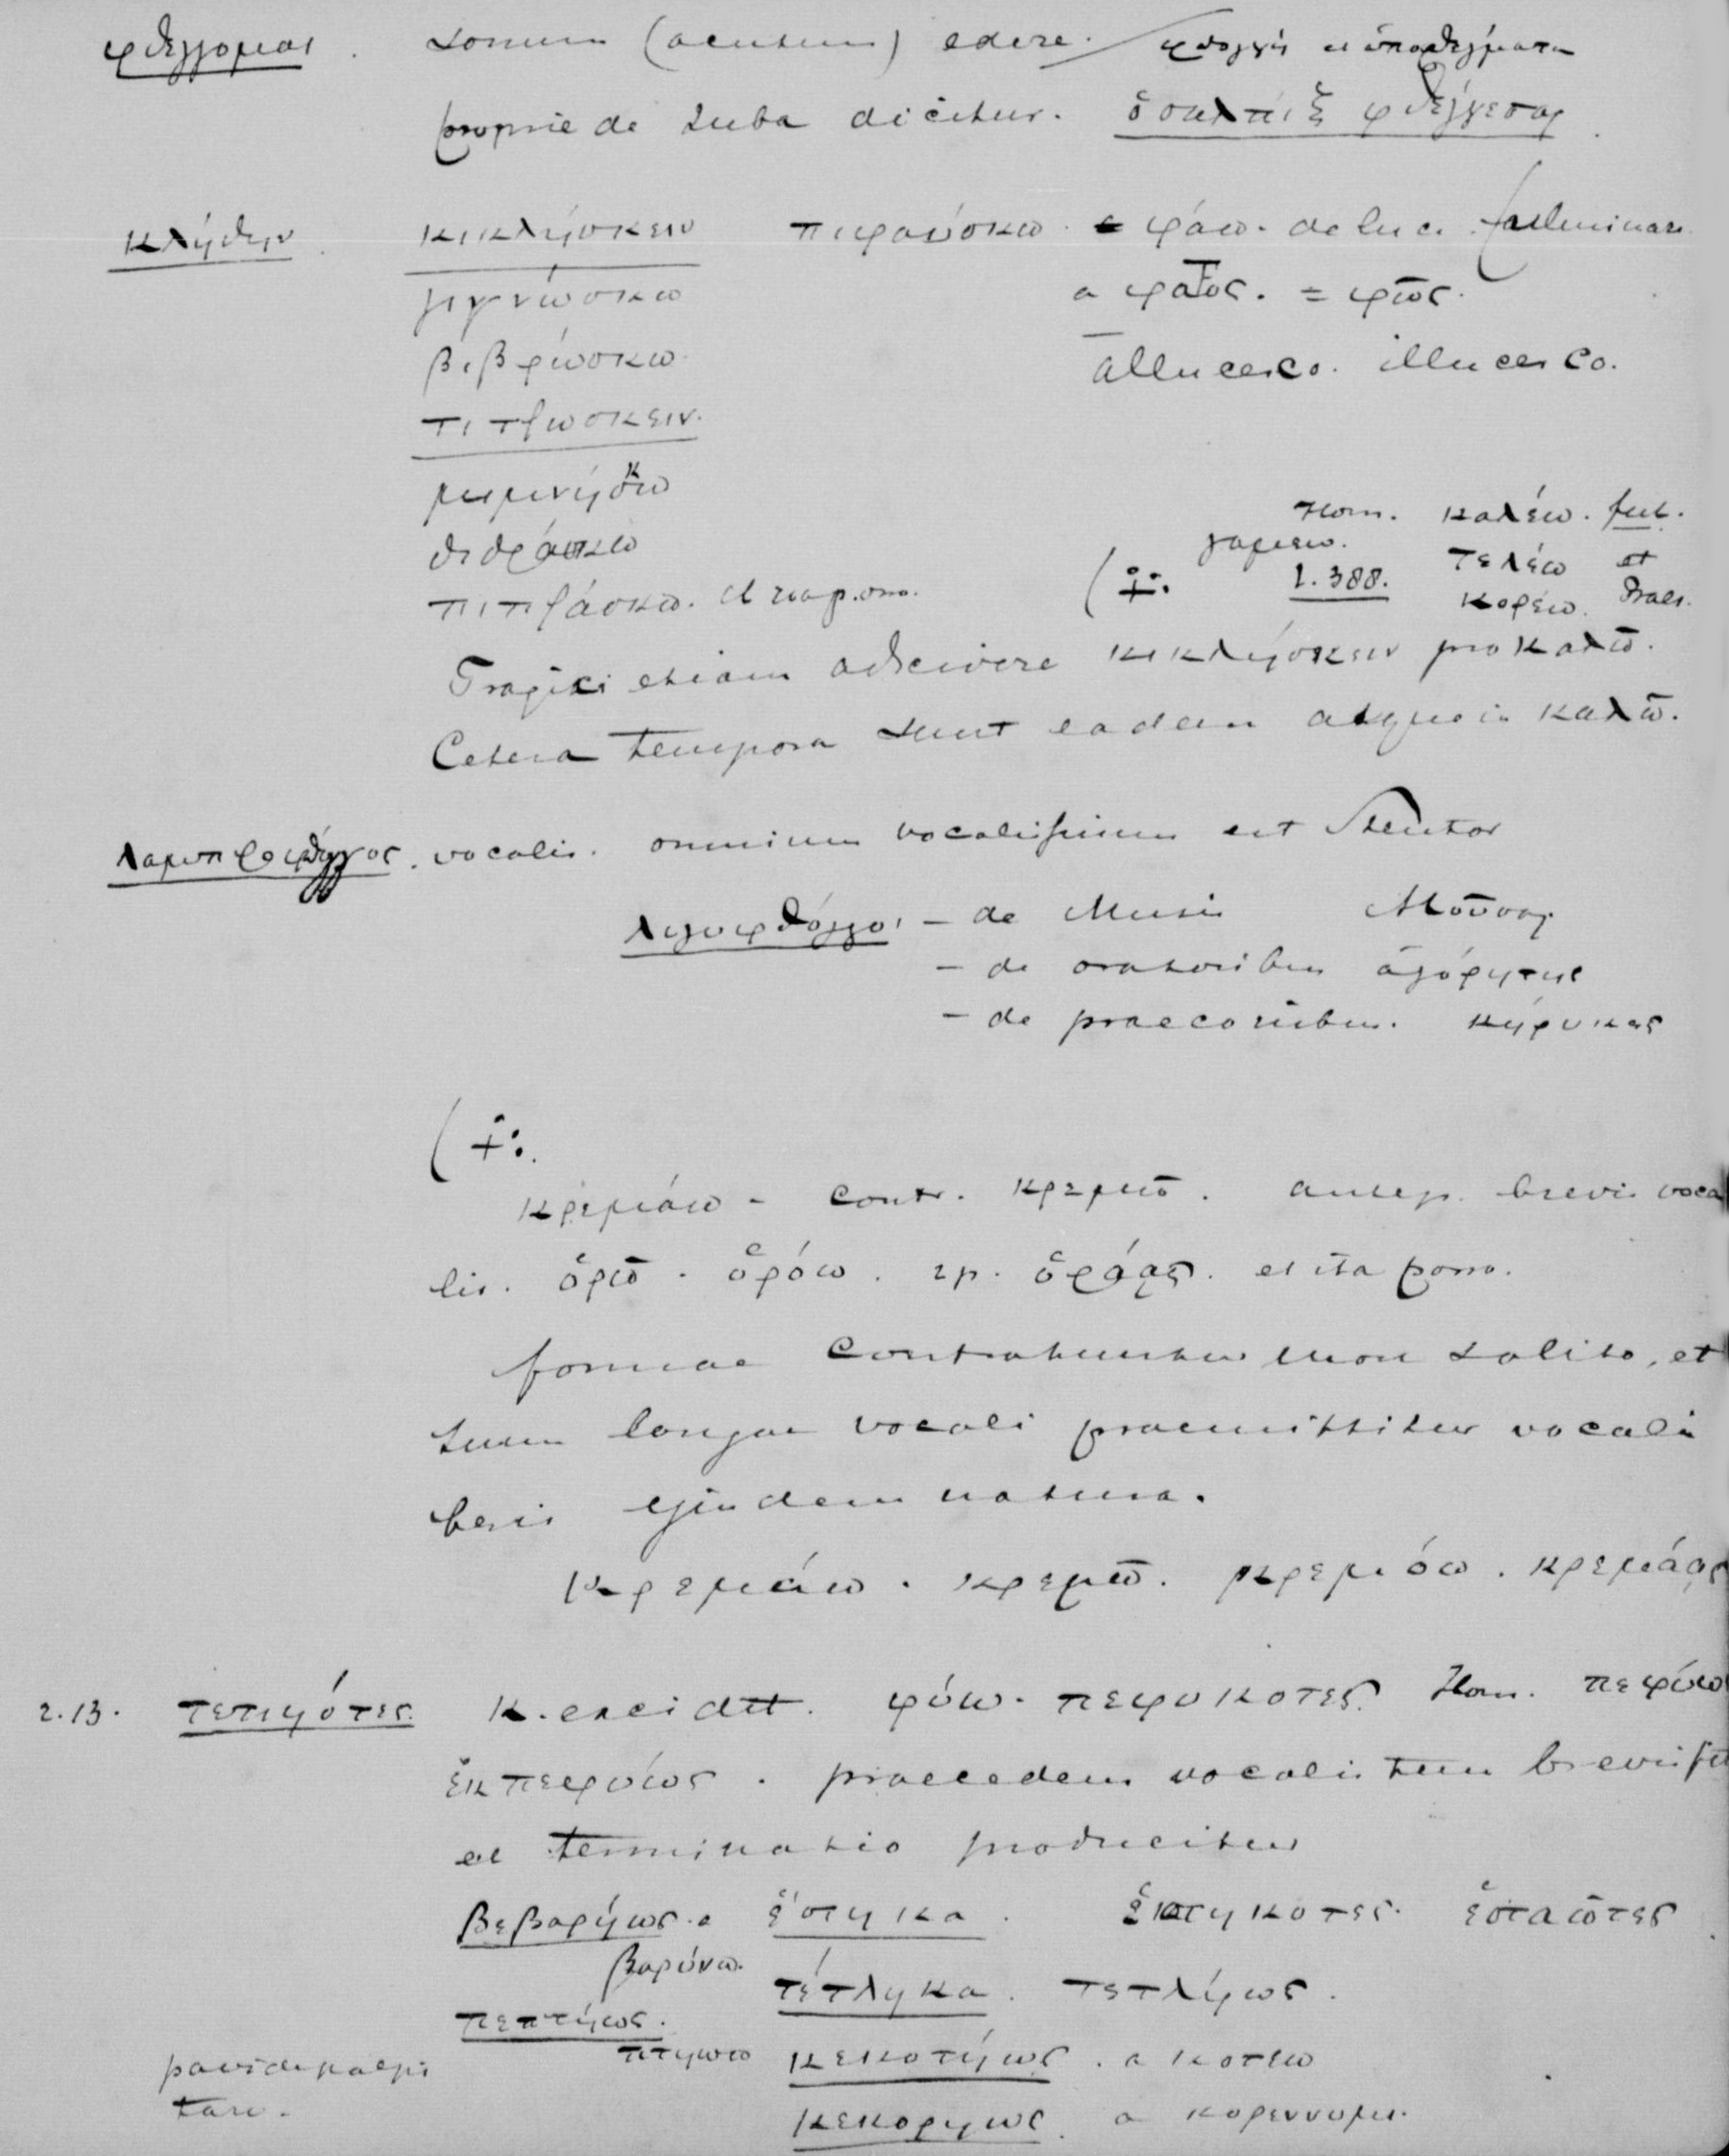 φθεγγομαι. sonum (acutum) edere. φθογγὴ et ἀποφθέγματα
proprie de tuba dicitur. ὁ σαλπιξ φθέγγεται.
κλήθην. κικλήσκειν πιφαύσκω = φάω. de luce
γιγνώσκω a φαϊος. = φῶς.
βιβρώσκω allucesco. illucesco.
τιτρωσκειν.
μιμινήσκω
θιθράσκω Hom. καλέω. fut.
γαμεω. τελέω et
πιπράσκω. (+: 1.388. κορέω. Praes.
Tragici etiam adscivere κικλήσκειν pro καλῶ.
Cetera tempora sunt eadem atque in καλῶ.
λαμπροφθογγος. vocalis. omnium vocalissimus est Stentor
λιγυφθόγγοι - de Musis Μοῦσαι
- de oratoribus ἀγόρητης
- de praeconibus. κήρυκες
(+:
κρεμάω - contr. κρεμῶ. antep. brevis voca
lis. ὁρῶ. ὁρόω. ὁράᾳς. et ita porro.
formae contrahuntur more solito, et
tum longae vocali praemittitur vocalis
brevis ejusdem natura.
κρεμάω. κρεμῶ. κρεμόω. κρεμάᾳς
2.13. τετιηότες κ. excidit. φύω. πεφυκοτες. Hom. πεφύω
ἐκπεφυώς. praecedens vocalis tum brevis fit
et terminatio producitur
βεβαρήως. a ἕστηκα. ἑστηκοτες. ἑσταῶτες
βαρύνω. τέτληκα. τετλήως.
πεπτήως.
πτησσω κεκοτήως. a κοτεω
pavide palpi
tare. κεκορηως. a κορεννυμι.